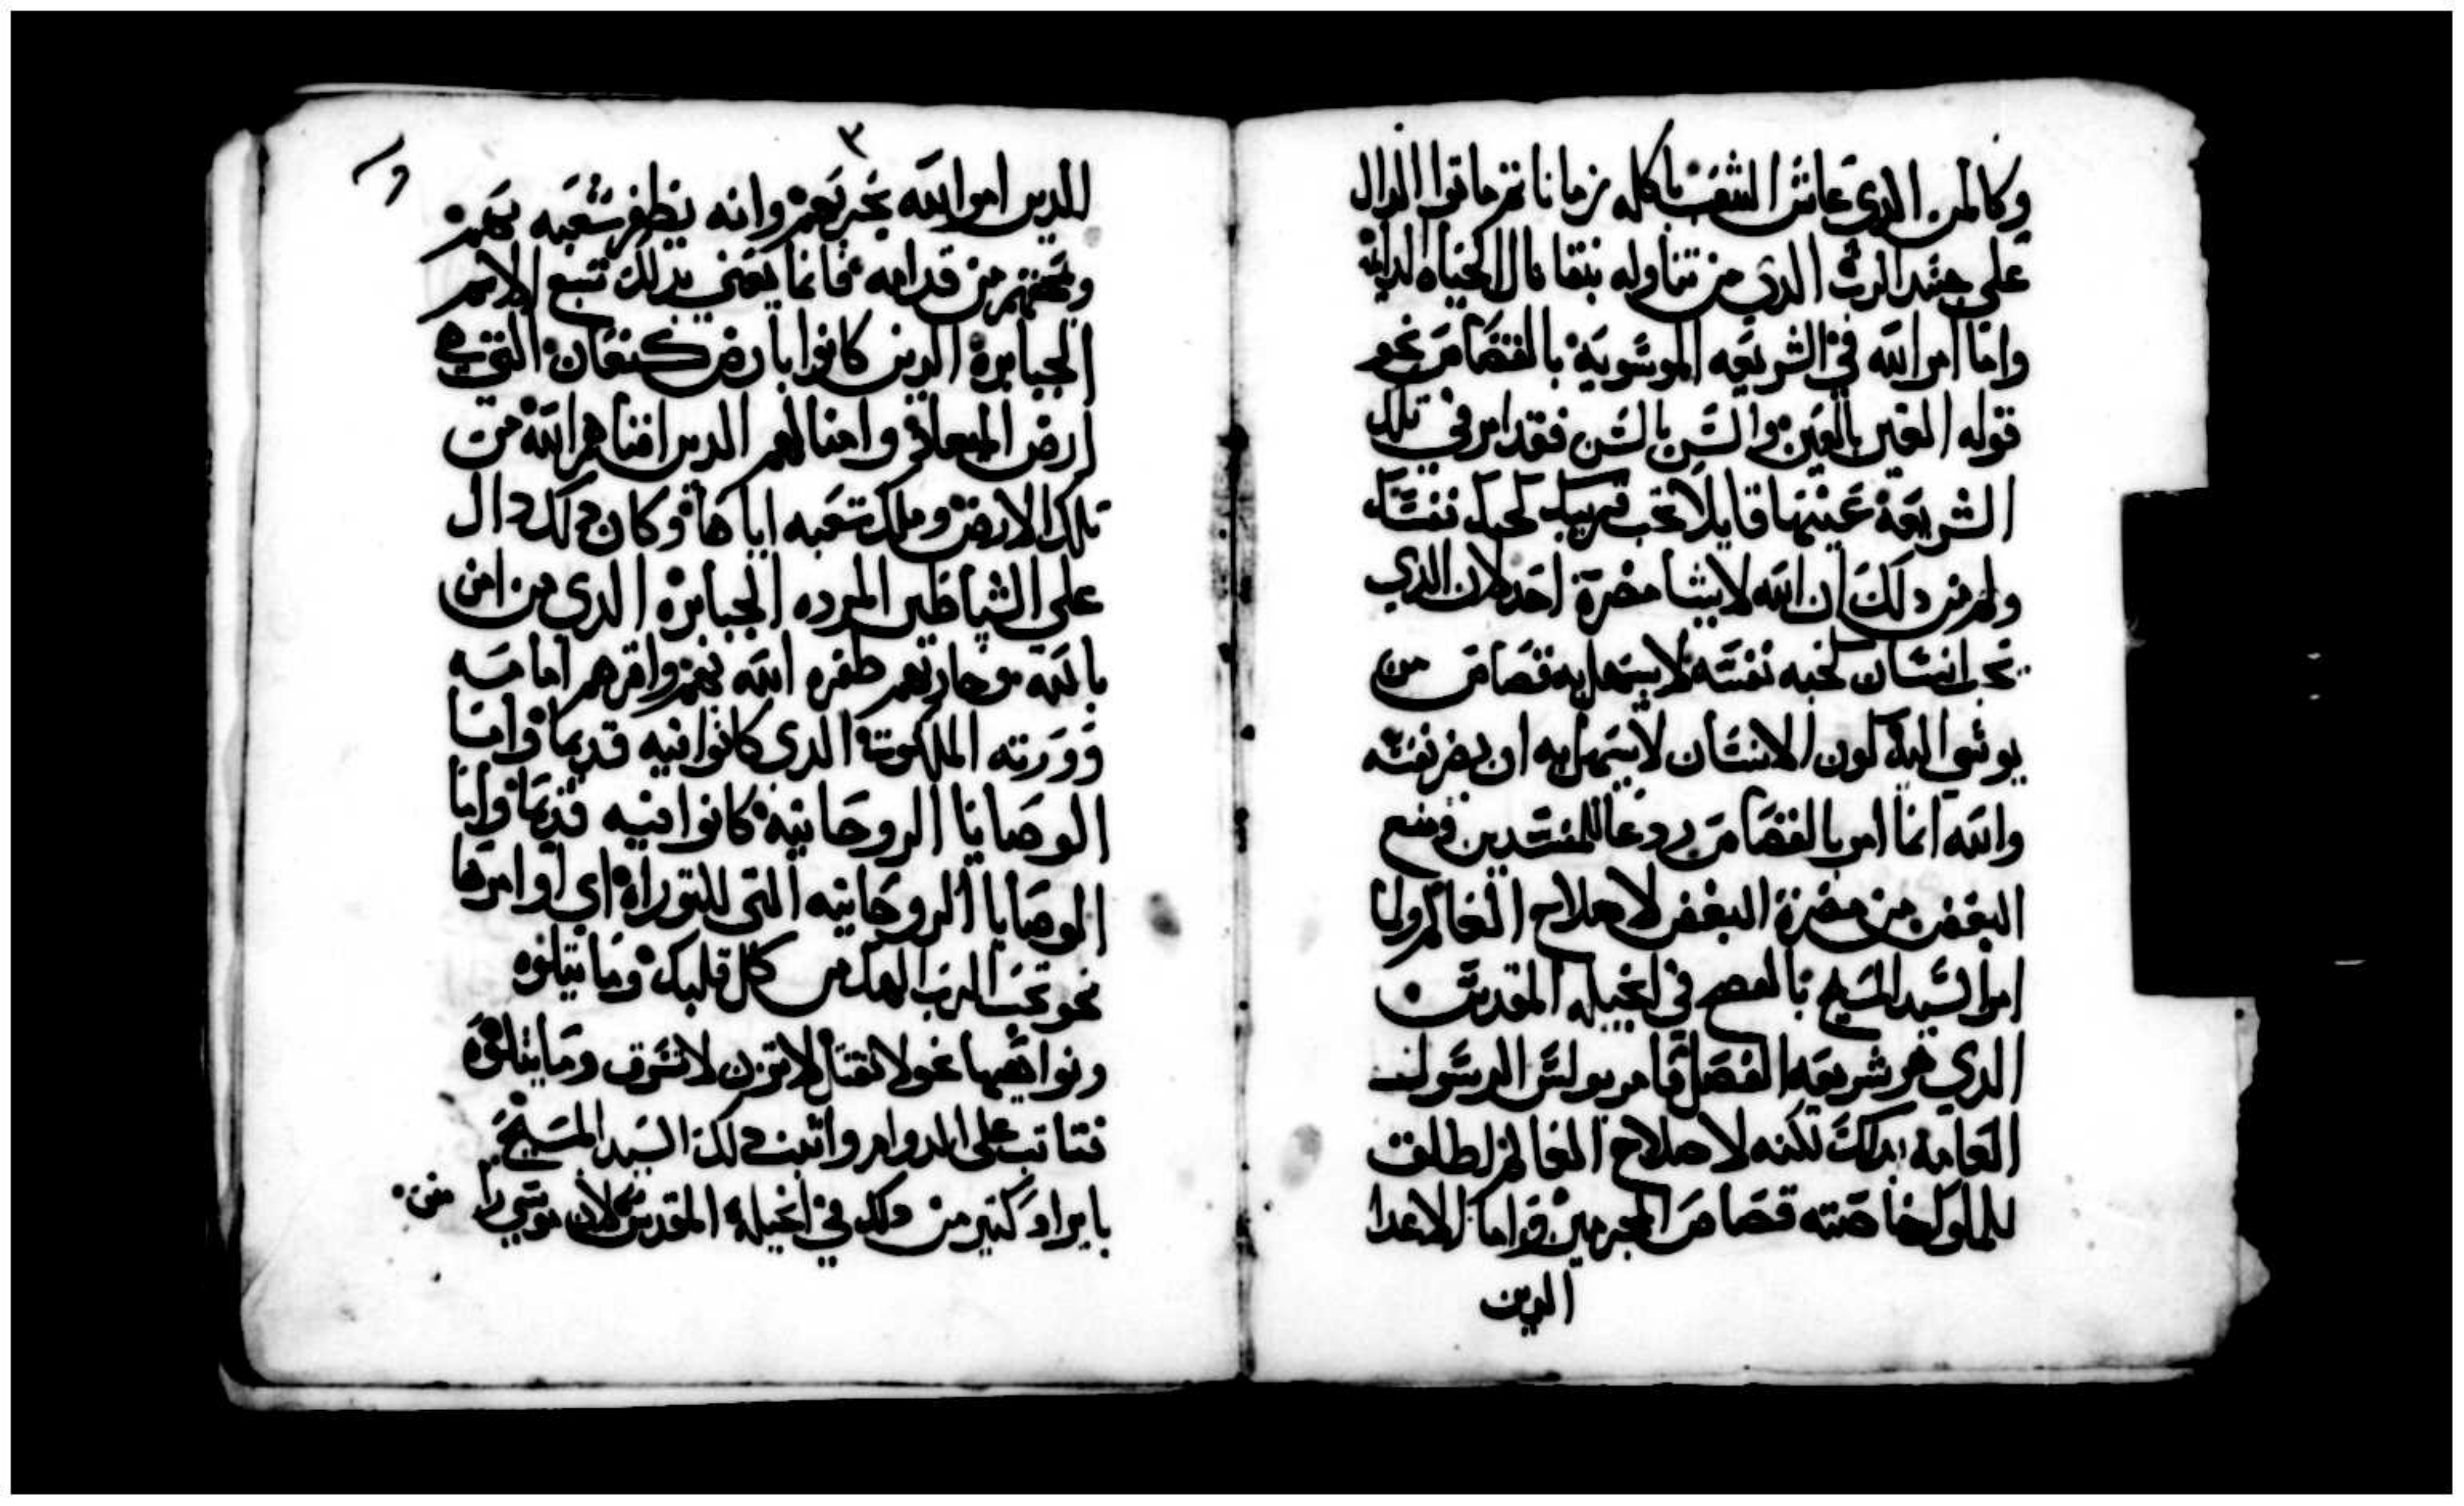 وكالمن الدي عاش الشعب باكله زمانا ثم ماتوا الدال
علي جسد الرب الدي من تناوله بنقا نال الحياه الدايمه
واما امر الله في الشريعه الموسوية بالقصاص نحو
قوله العين بالعين والسن بالسن فقد امر في تلك
الشريعة عينها قايلا تحب قريبك كحبك نفسك
ولهر من دلك ان الله لا يشا مضرة احد لان الدي
يحب انسان كحبه نفسه لا يسهل به قصاص من
يوسي اليه كون الانسان لا يسهل به ان يضر نفسه
والله انما امر بالقصاص ردعا للمفسدين ومنع
البعض من مضرة البعض لاصلاح العالم ولما
امر السيد المسيح بالفصح في انجيله المقدس
الدي هو شريعه الفضل قامر بولس الرسول
العامة بدلك لكنه لاصلاح العالم اطلق
للملوك خاصته قصاص المجرمين واما الاعدا
الدين
٣
الدين امر الله بحربهم وانه يظفر شعبه بهم
من قدامه فانما يعني بدلك تسع الامم
الجبابرة الدين كانوا بارض كنعان التي هي
ارض الميعاد وامثالهم الدين افناهم الله من
تلك الارض وملك شعبه اياها وكان دلك دال
علي الشياطين المرده الجبابره الدي من امن
بالله وحاربهم ظفره الله بهم وافرهم امامه
وورته الملكوت الدي كانوا فيه قديما واما
الوصايا الروحانيه كانوا فيه قديما واما
الوصايا الروحانيه التي للتوراه اي اوامرها
نحو تحب الرب الهك من كل قلبك وما يتلوه
ونواهيها نحو لا تقتل لا تزن لا تسرق وما يتلوه
فتابت على الدوام واثبت دلك السيد المسيح
بايراد كثير من دلك في انجيله المقدس لان موسي